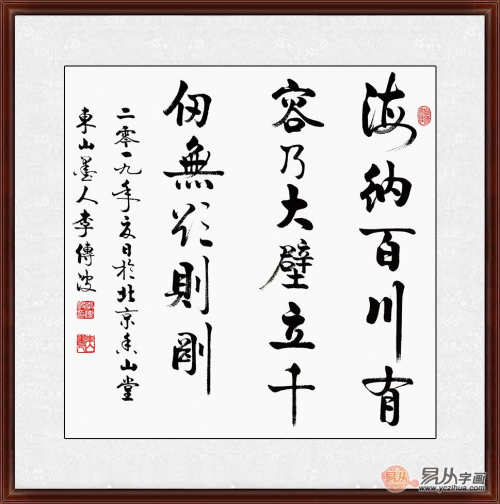 海納百川有
容乃大壁立千
仞無欲則剛
二零一九年夏日於北京山堂
東山墨人李傳波
易从
易从字画
www.yczihua.com